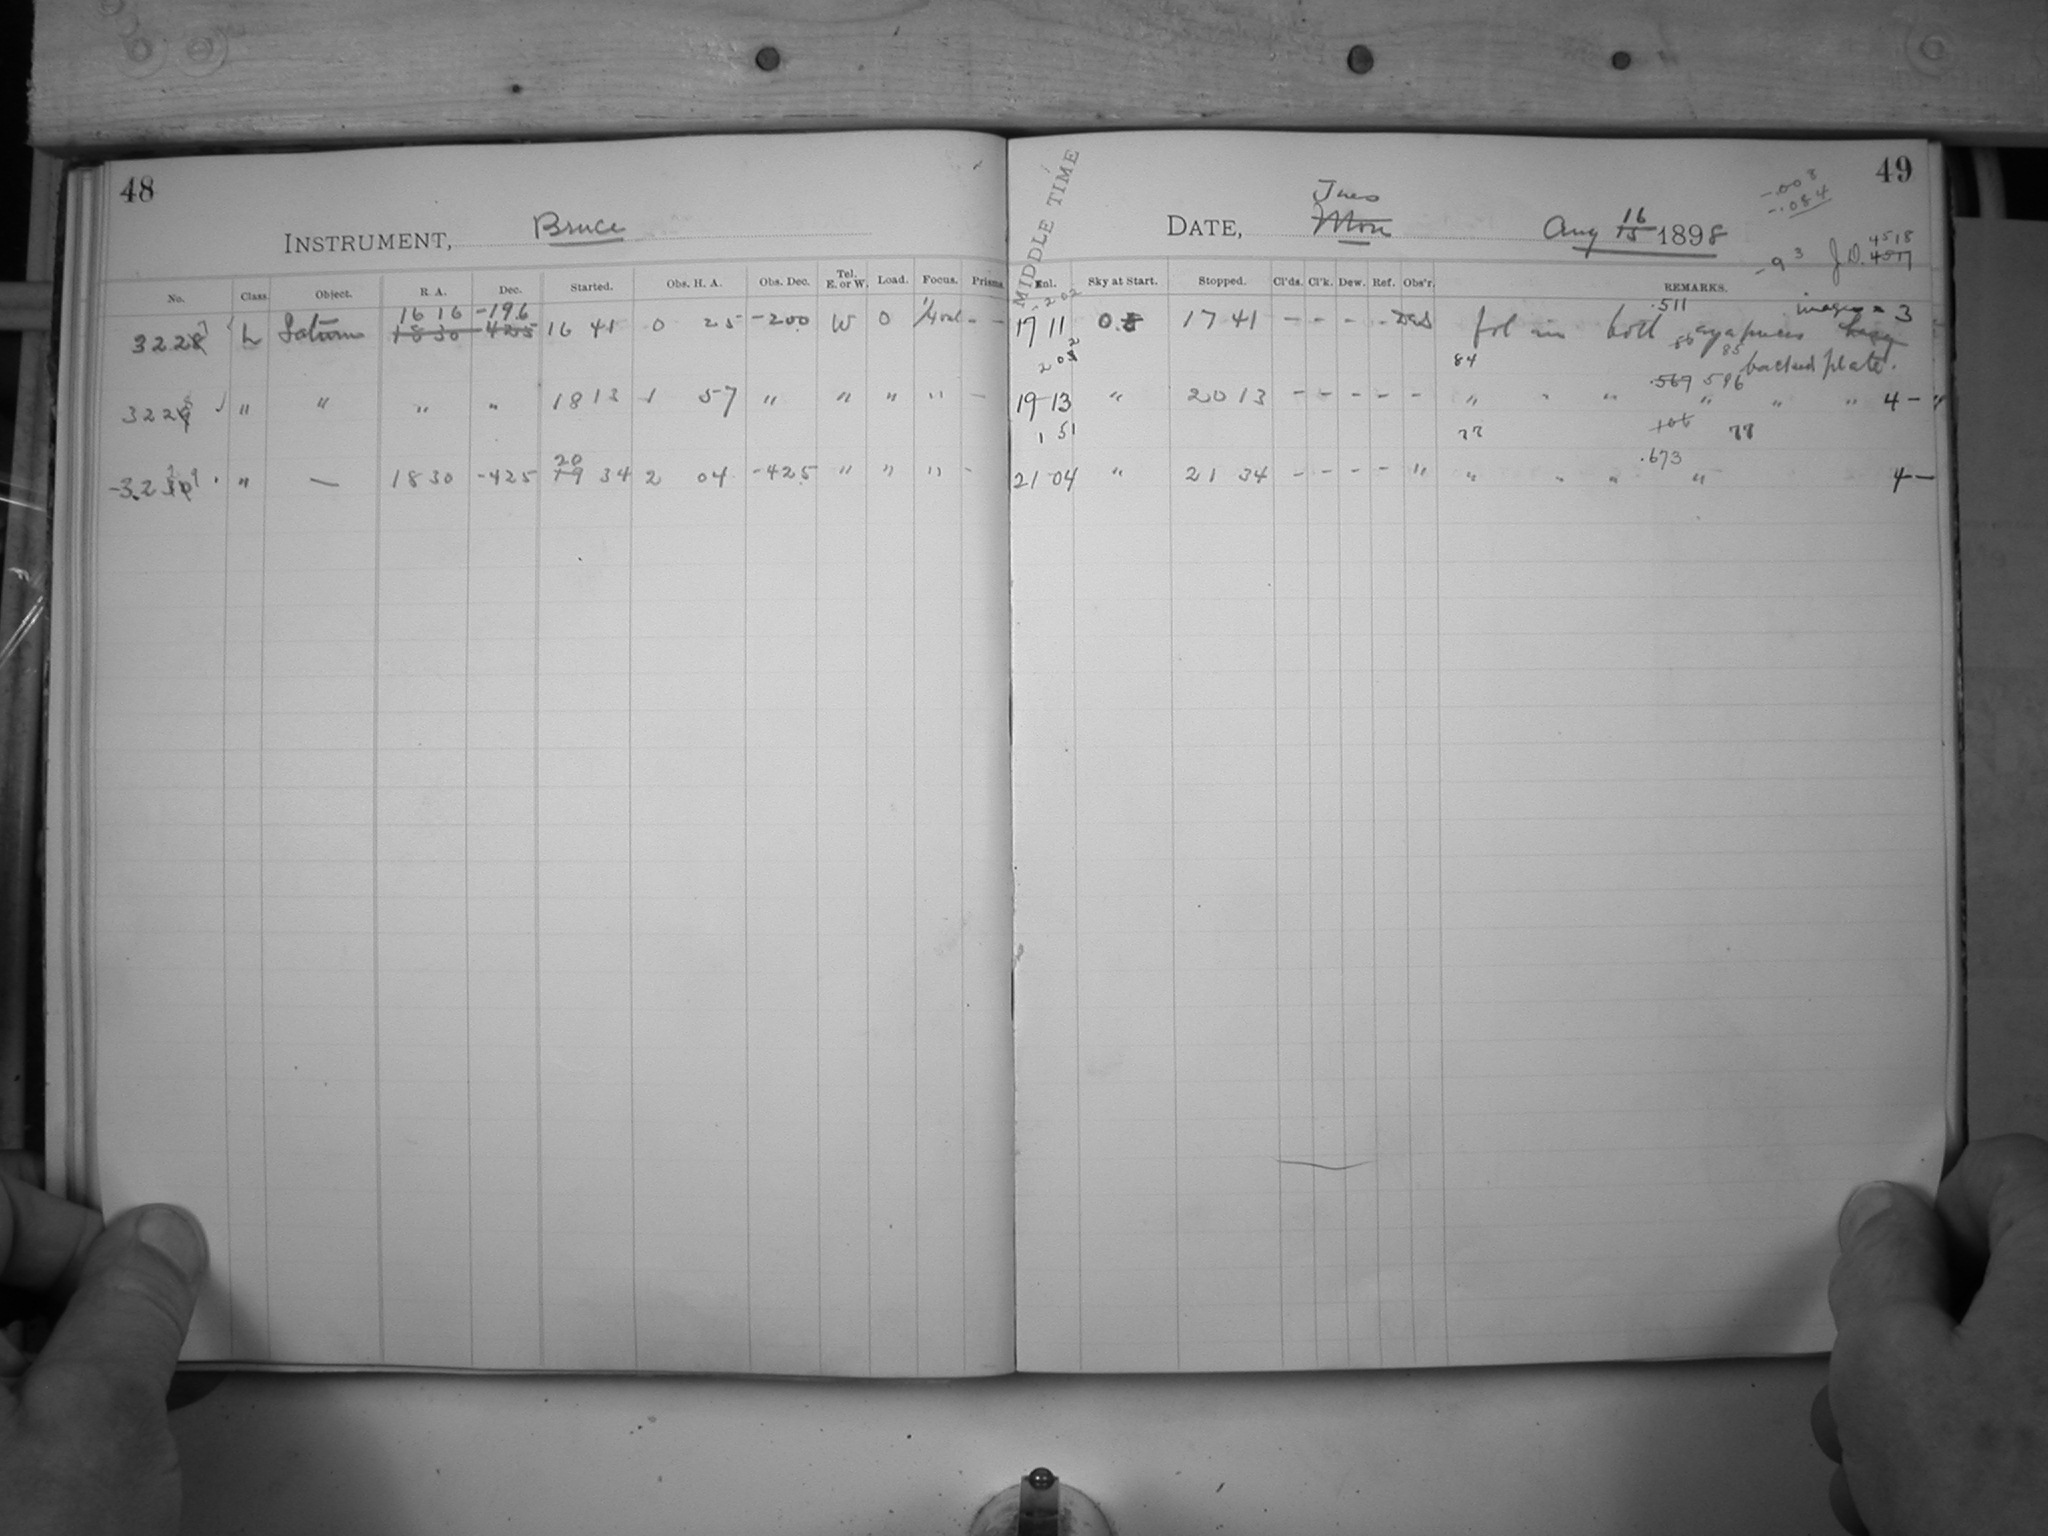 48
INSTRUMENT, Bruce
No. Class. Object. R. A. Dec. Started. Obs. H. A. Obs. Dec. Tel. E. or W. Load. Focus. Prisms.
16 16 -196
3228 7 L Saturn 18 30 -425 16 41 0 25 -200 W 0 - -
3229 8 " " " " 18 13 1 57 " " " " -
20
3230 9 " — 18 30 -425 19 34 2 04 -425 " " " -
49
MIDDLE TIME
-.003
-.084
Tues
DATE, Mon Aug 16 15 1898
-93 J.D. 4518
4517
Enl. Sky at Start. Stopped. Cl'ds. Cl'k. Dew. Ref. Obs'r. REMARKS.
2 02 .511 images = 3
17 11 0.8 17 41 - - - - fol in both
2 03 2 84 86 85 backed plate.
.569 596
19 13 " 20 13 - - - - - " " " " " " 4 - "
1 51 77 106 77
.673
21 04 " 21 34 - - - - " " " " " 4 -